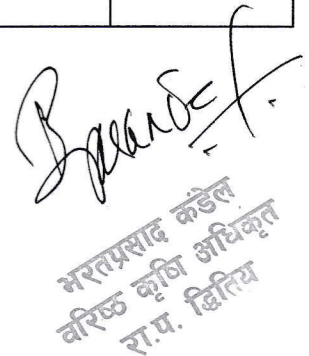 भरतप्रसाद कंडेल
वरिष्ठ कृषि अधिकृत
रा.प. द्वितिय